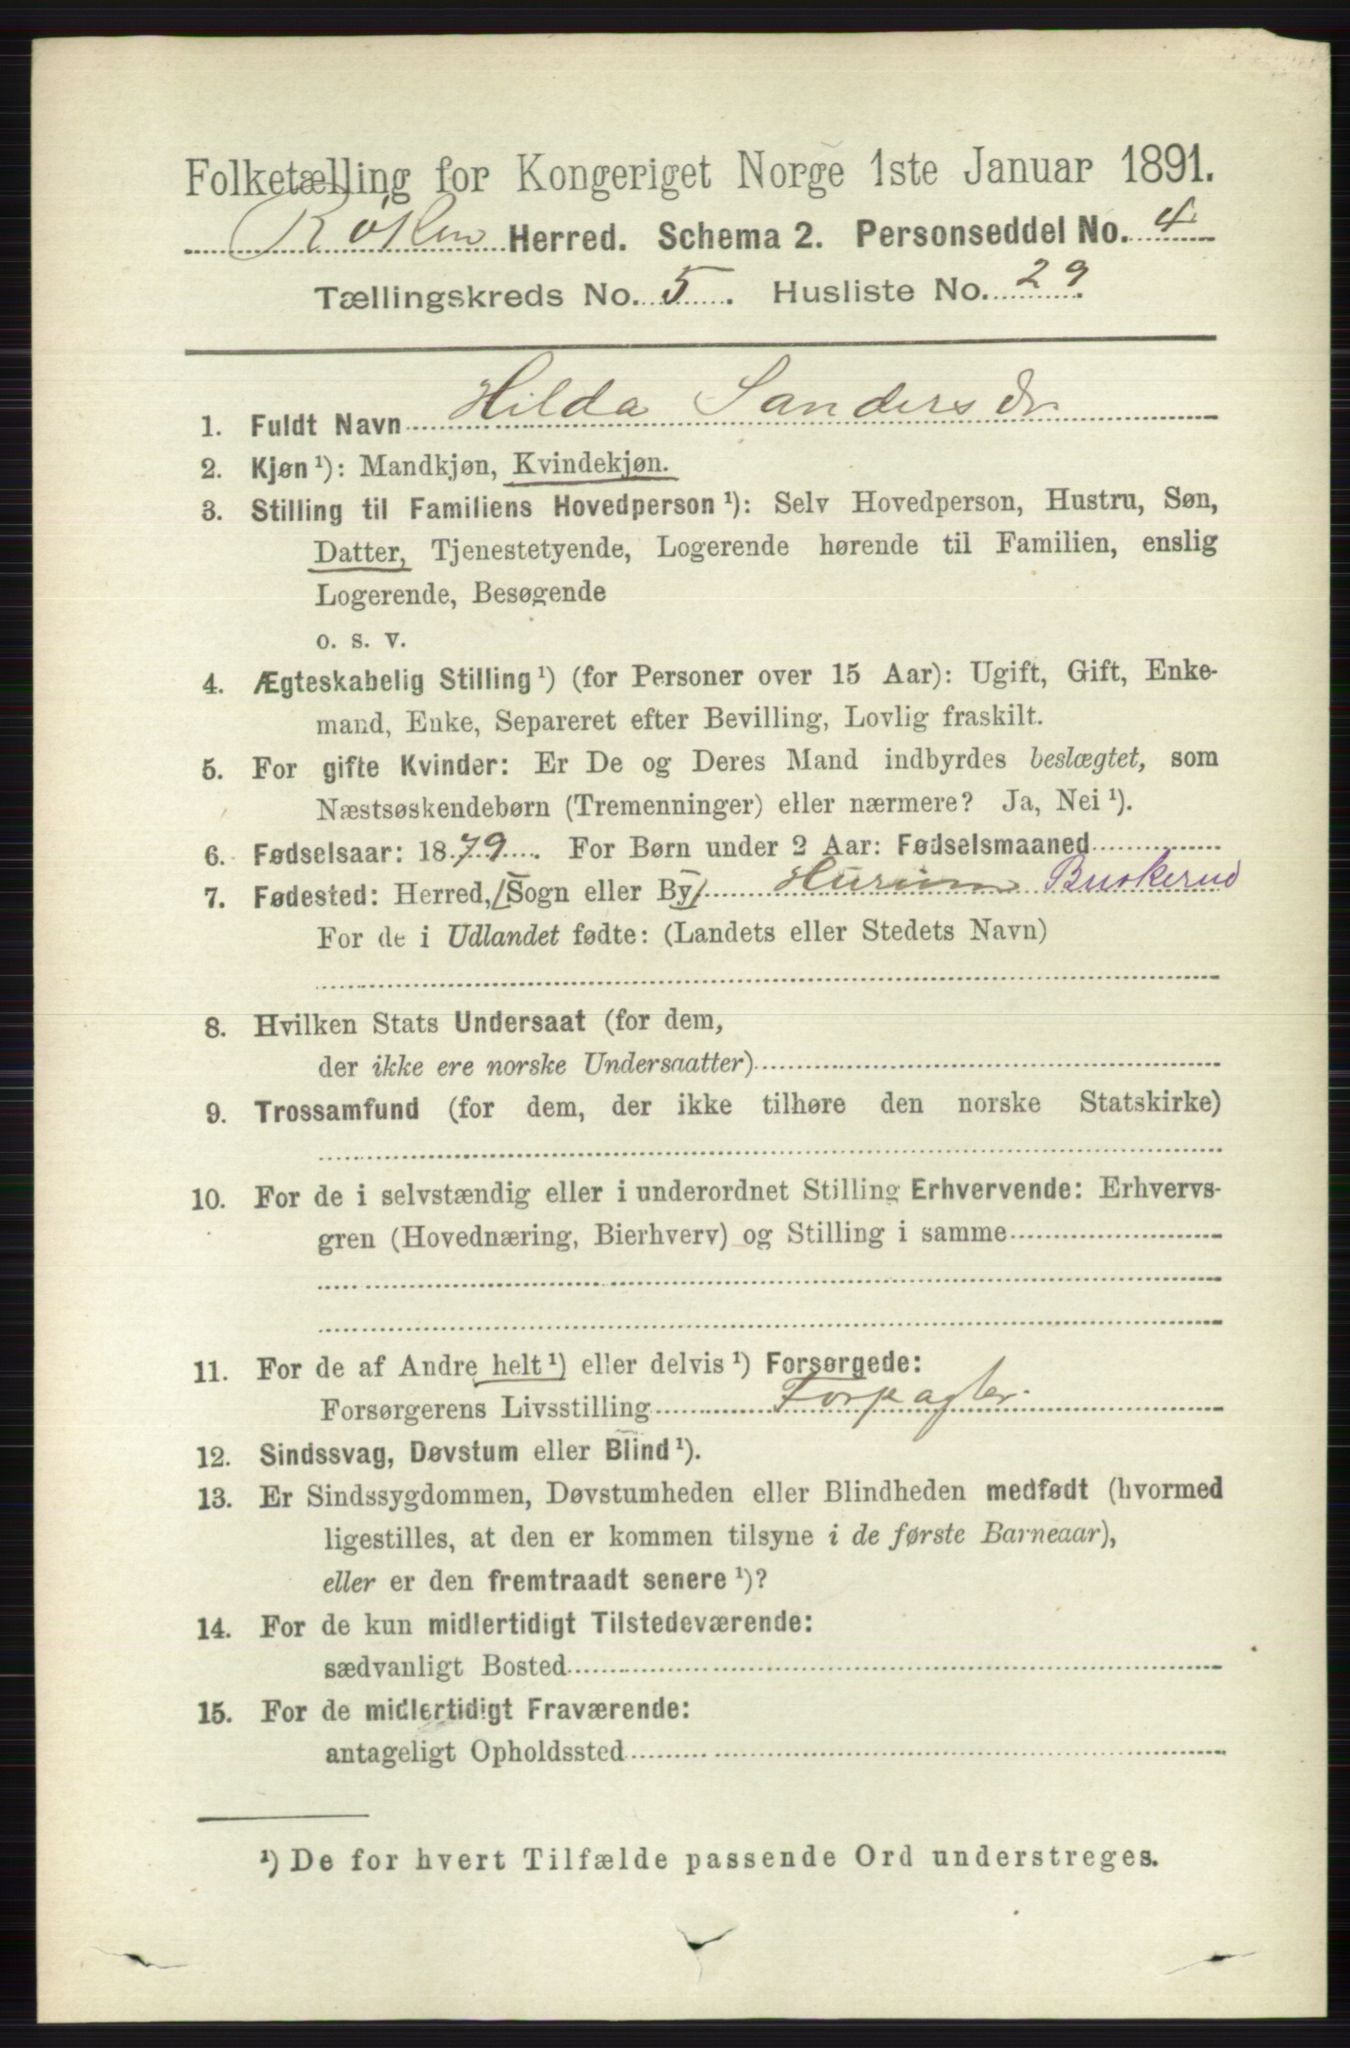 Folketælling for Kongeriget Norge 1ste Januar 1891.
Røken Herred. Schema 2. Personseddel No. 4
Tællingskreds No. 5. Husliste No. 29
1. Fuldt Navn Hilda Sandersdr
2. Kjøn ¹): Mandkjøn, Kvindekjøn.
3. Stilling til Familiens Hovedperson ¹): Selv Hovedperson, Hustru, Søn,
Datter, Tjenestetyende, Logerende hørende til Familien, enslig
Logerende, Besøgende
o. s. v.
4. Ægteskabelig Stilling ¹) (for Personer over 15 Aar): Ugift, Gift, Enke-
mand, Enke, Separeret efter Bevilling, Lovlig fraskilt.
5. For gifte Kvinder: Er De og Deres Mand indbyrdes beslægtet, som
Næstsøskendebørn (Tremenninger) eller nærmere? Ja, Nei ¹).
6. Fødselsaar: 1879. For Børn under 2 Aar: Fødselsmaaned
7. Fødested: Herred, [Sogn eller By] Hurum Buskerud
For de i Udlandet fødte: (Landets eller Stedets Navn)
8. Hvilken Stats Undersaat (for dem,
der ikke ere norske Undersaatter)
9. Trossamfund (for dem, der ikke tilhøre den norske Statskirke)
10. For de i selvstændig eller i underordnet Stilling Erhvervende: Erhvervs-
gren (Hovednæring, Bierhverv) og Stilling i samme
11. For de af Andre helt ¹) eller delvis ¹) Forsørgede:
Forsørgerens Livsstilling Forpagter.
12. Sindssvag, Døvstum eller Blind ¹).
13. Er Sindssygdommen, Døvstumheden eller Blindheden medfødt (hvormed
ligestilles, at den er kommen tilsyne i de første Barneaar),
eller er den fremtraadt senere ¹)?
14. For de kun midlertidigt Tilstedeværende:
sædvanligt Bosted
15. For de midlertidigt Fraværende:
antageligt Opholdssted
¹) De for hvert Tilfælde passende Ord understreges.